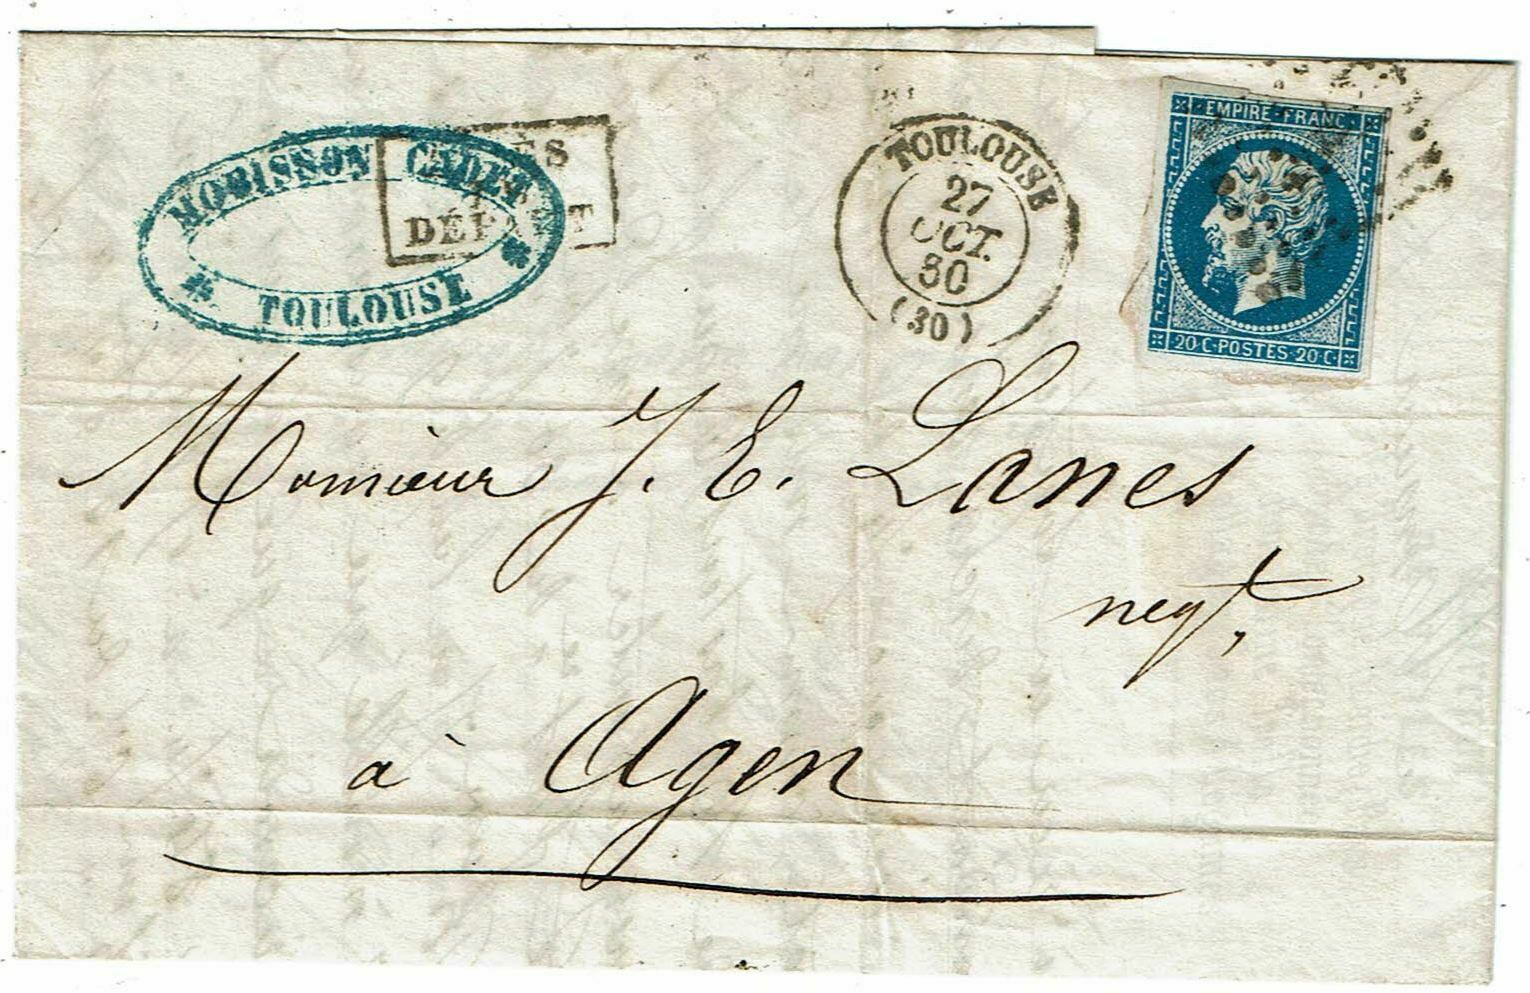 MORISSON CADET
TOULOUSE
APRÈS
LE
DÉPART
TOULOUSE
27
OCT.
60
(30)
EMPIRE·FRANC·
20·C·POSTES·20·C·
Monsieur J. E. Lanes
negt,
à Agen